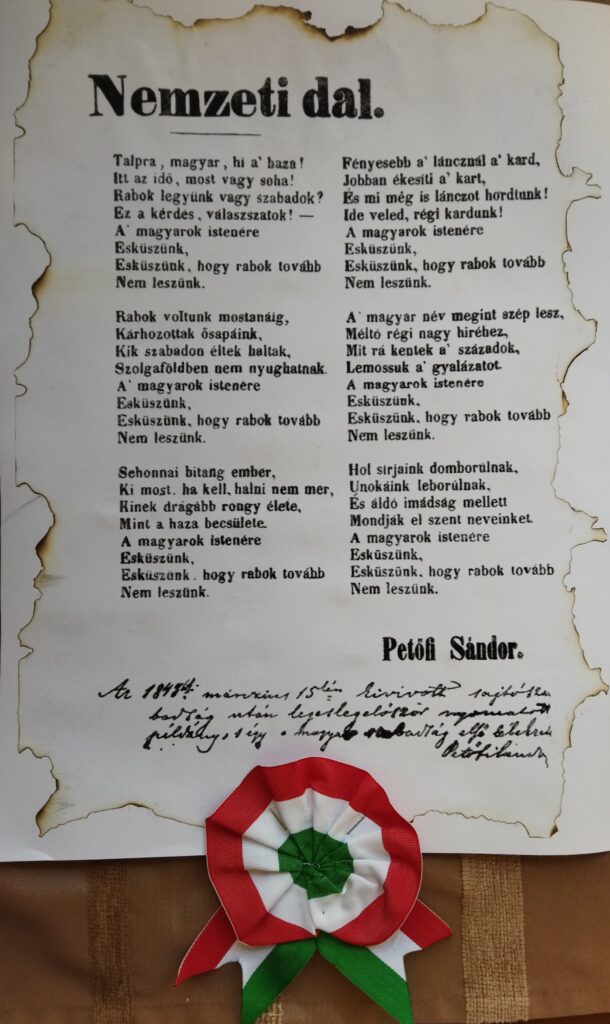 Nemzeti dal.
Talpra, magyar, hi a' haza!
Itt az idő, most vagy soha!
Rabok legyünk vagy szabadok?
Ez a kérdés, válaszszatok! —
A' magyarok istenére
Esküszünk,
Esküszünk, hogy rabok tovább
Nem leszünk.
Rabok voltunk mostanáig,
Kárhozottak ősapáink,
Kik szabadon éltek haltak,
Szolgaföldben nem nyughatnak.
A' magyarok istenére
Esküszünk,
Esküszünk, hogy rabok tovább
Nem leszünk.
Sehonnai bitang ember,
Ki most, ha kell, halni nem mer,
Kinek drágább rongy élete,
Mint a haza becsülete.
A magyarok istenére
Esküszünk,
Esküszünk, hogy rabok tovább
Nem leszünk.
Fényesebb a' láncznál a' kard,
Jobban ékesiti a' kart,
És mi még is lánczot hordtunk!
Ide veled, régi kardunk!
A magyarok istenére
Esküszünk,
Esküszünk, hogy rabok tovább
Nem leszünk.
A' magyar név megint szép lesz,
Méltó régi nagy hiréhez,
Mit rá kentek a' századok,
Lemossuk a' gyalázatot.
A magyarok istenére
Esküszünk,
Esküszünk, hogy rabok tovább
Nem leszünk.
Hol sirjaink domborúlnak,
Unokáink leborúlnak,
És áldó imádság mellett
Mondják el szent neveinket.
A magyarok istenére
Esküszünk,
Esküszünk, hogy rabok tovább
Nem leszünk.
Petőfi Sándor.
Az 1848diki márczius 15kén kivivott sajtósza
badság után legeslegelőször nyomatott
példány, s így a magyar szabadság első lélekzete
Petőfi Sándor